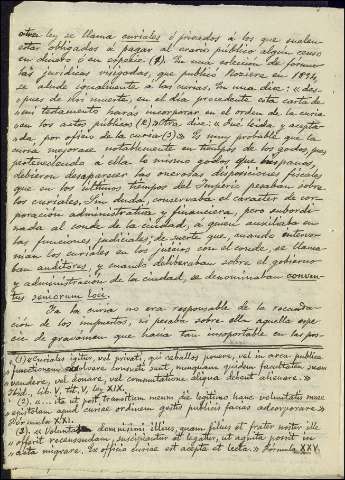 ley se llama curiales ó privados á los que suelen
estar obligados á pagar al erario público algún censo
en dinero ó en especie (1). En una colección de fórmu-
las jurídicas visigodas, que publicó Roziere en 1854,
se alude igualmente á las curias. En una dice: «des-
pues de mi muerte, en el dia procedente esta carta de
mi testamento haras incorporar en el orden de la curia
en los actos publicos (2)» Otra dice: « fué leida y acepta-
da, por oficio de la curia (3).» Es muy probable que la
curia mejorase notablemente en tiempos de los godos, pues
perteneciendo á ella lo mismo godos que hispanos,
debieron desaparecer las onerosas disposiciones fiscales
que en los últimos tiempos del Imperio pesaban sobre
los curiales. Sin duda, conservaba el caracter de cor-
poración administrativa y financiera, pero subordi-
nada al conde de la ciudad, a quien auxiliaba en
las funciones judiciales; de suerte que, cuando interve-
nian los curiales en los juicios con el conde, se llama-
ban auditores, y cuando deliberaban sobre el gobierno
y administración de la ciudad, se denominaban conven-
tus seniorum loci.
Ya la curia no era responsable de la recauda-
ción de los impuestos, ni pesaba sobre ella aquella espe-
cie de gravamen que hacia tan insoportable en las pos-
(1) «Curiales igitur, vel privati, qui caballos ponere, vel in arca publica
functionem exsolvere consueti sunt, nunquam quidem facultatem suam
vendere, vel donare, vel commutatione aliqua debent alienare.»
Ibid., lib. V, tít. IV, ley XIX.
(2) «... ita ut post transitum meum die legitimo hanc voluntatis meae
epistolam apud curiae ordinem gestis publicis facias adcorporare.»
Fórmula XXI.
(3) «Voluntas domni illius, quam filius et frater noster ille
offerit recensendam, suscipiatur et legatur, ut agnita possit in
acta migrare. Ex officio curiae est acepta et lecta.» Fórmula XXV.